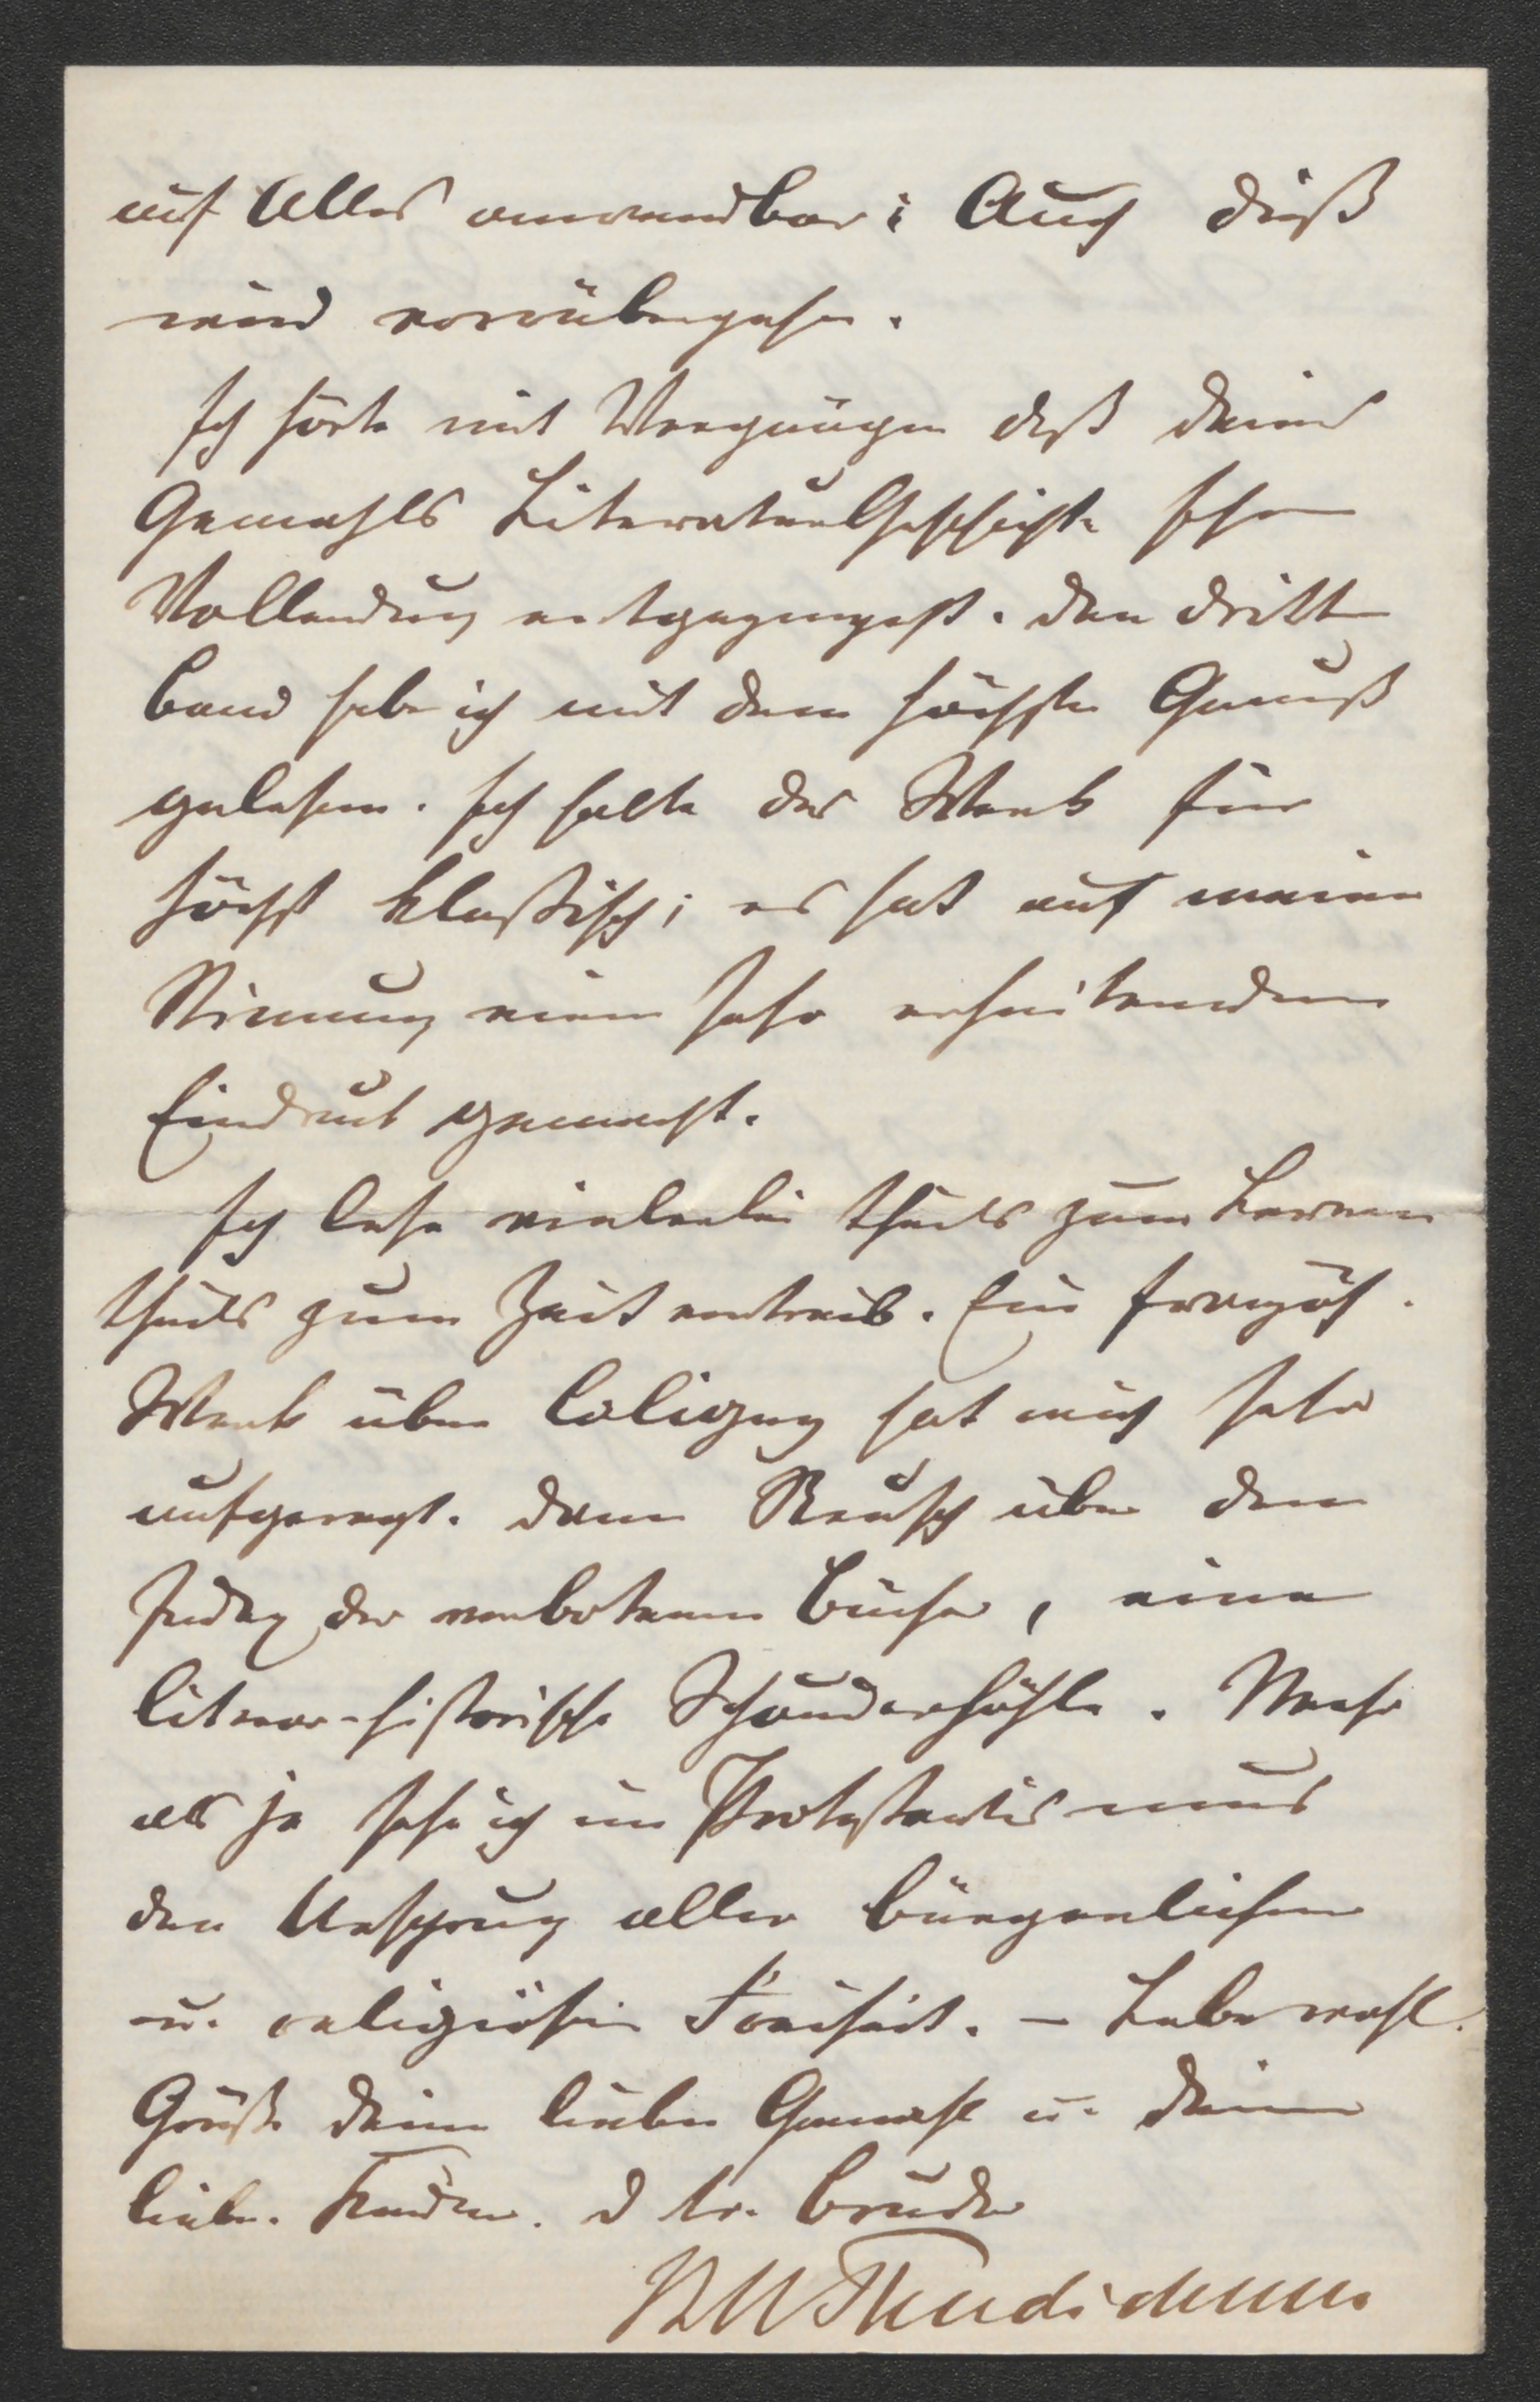 auf Alles anwendbar: Auch dieß
wird vorrübergehen.
Ich hörte mit Vergnügen daß deines
Gemahls LiteraturGeschichte ihrer
Vollendung entgegengeht. den dritten
Band habe ich mit dem höchsten Genuß
gelesen. Ich halte das Werk für
höchst klassisch; es hat auf meine
Stimmung einen sehr erheiternden
Eindruck gemacht.
Ich lese vielerlei theils zum Lernen
theils zum Zeitvertreib. Ein französ.
Werk über Coligny hat mich sehr
aufgeregt. dann Reusch über den
Index der verbotenen Bücher, eine
literar-historische Schauderhöhle. Mehr
als je sehe ich im Protestantismus
den Ursprung aller bürgerlichen
u. religiösen Freiheit. – Lebe wohl.
Grüße deinen lieben Gemahl u. deine
lieben Kinder. d tr. Bruder
Thudichum